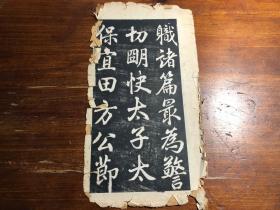 職諸篇最為警
切明快太子太
保宜田方公節